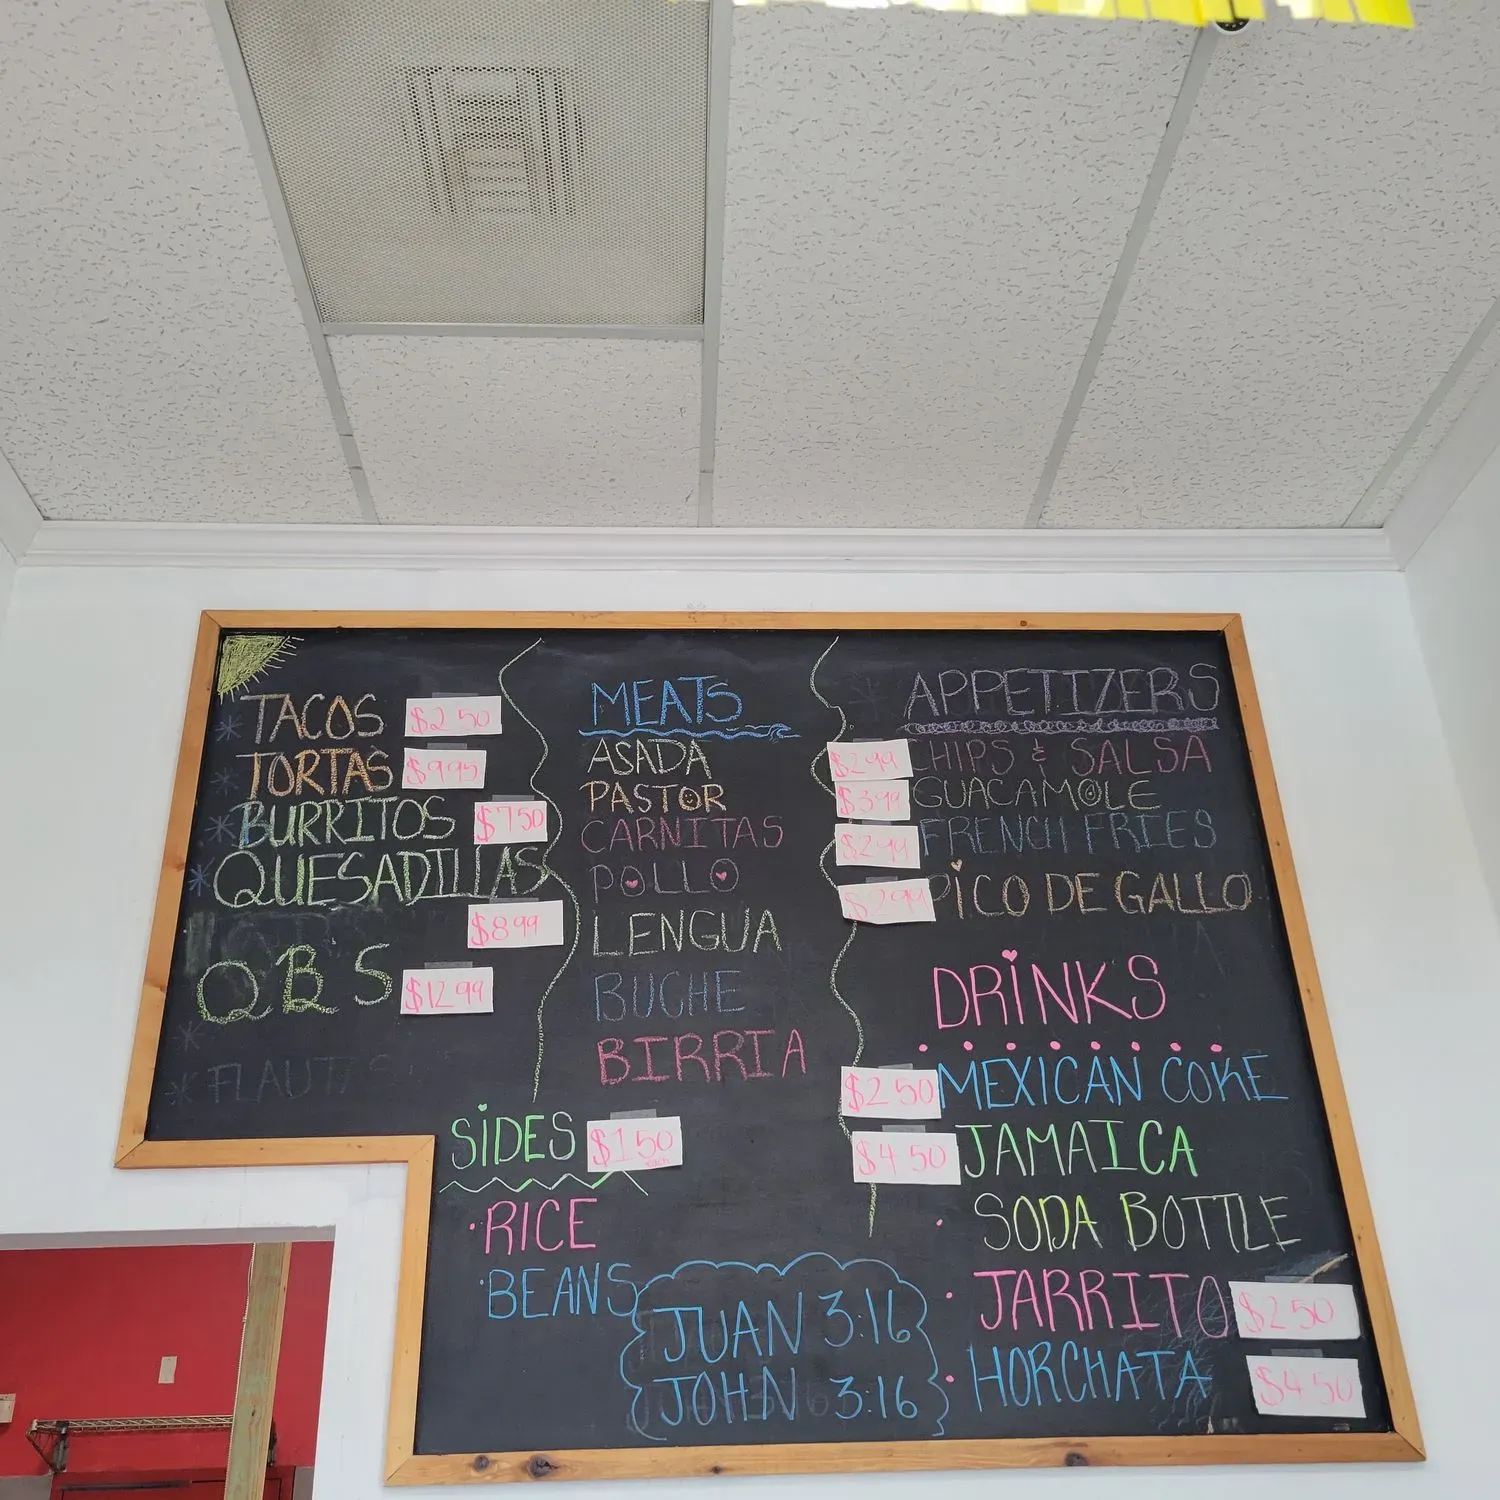 TACOS $2.50
TORTAS $9.95
BURRITOS $7.50
QUESADILLAS
$8.99
QBS $12.99
FLAUTAS
MEATS
ASADA
PASTOR
CARNITAS
POLLO
LENGUA
BUCHE
BIRRIA
SIDES $1.50 each
RICE
BEANS
JUAN 3:16
JOHN 3:16
APPETIZERS
$2.99 CHIPS & SALSA
$3.99 GUACAMOLE
$2.99 FRENCH FRIES
$2.99 PICO DE GALLO
DRINKS
$2.50 MEXICAN COKE
$4.50 JAMAICA
SODA BOTTLE
JARRITO $2.50
HORCHATA $4.50